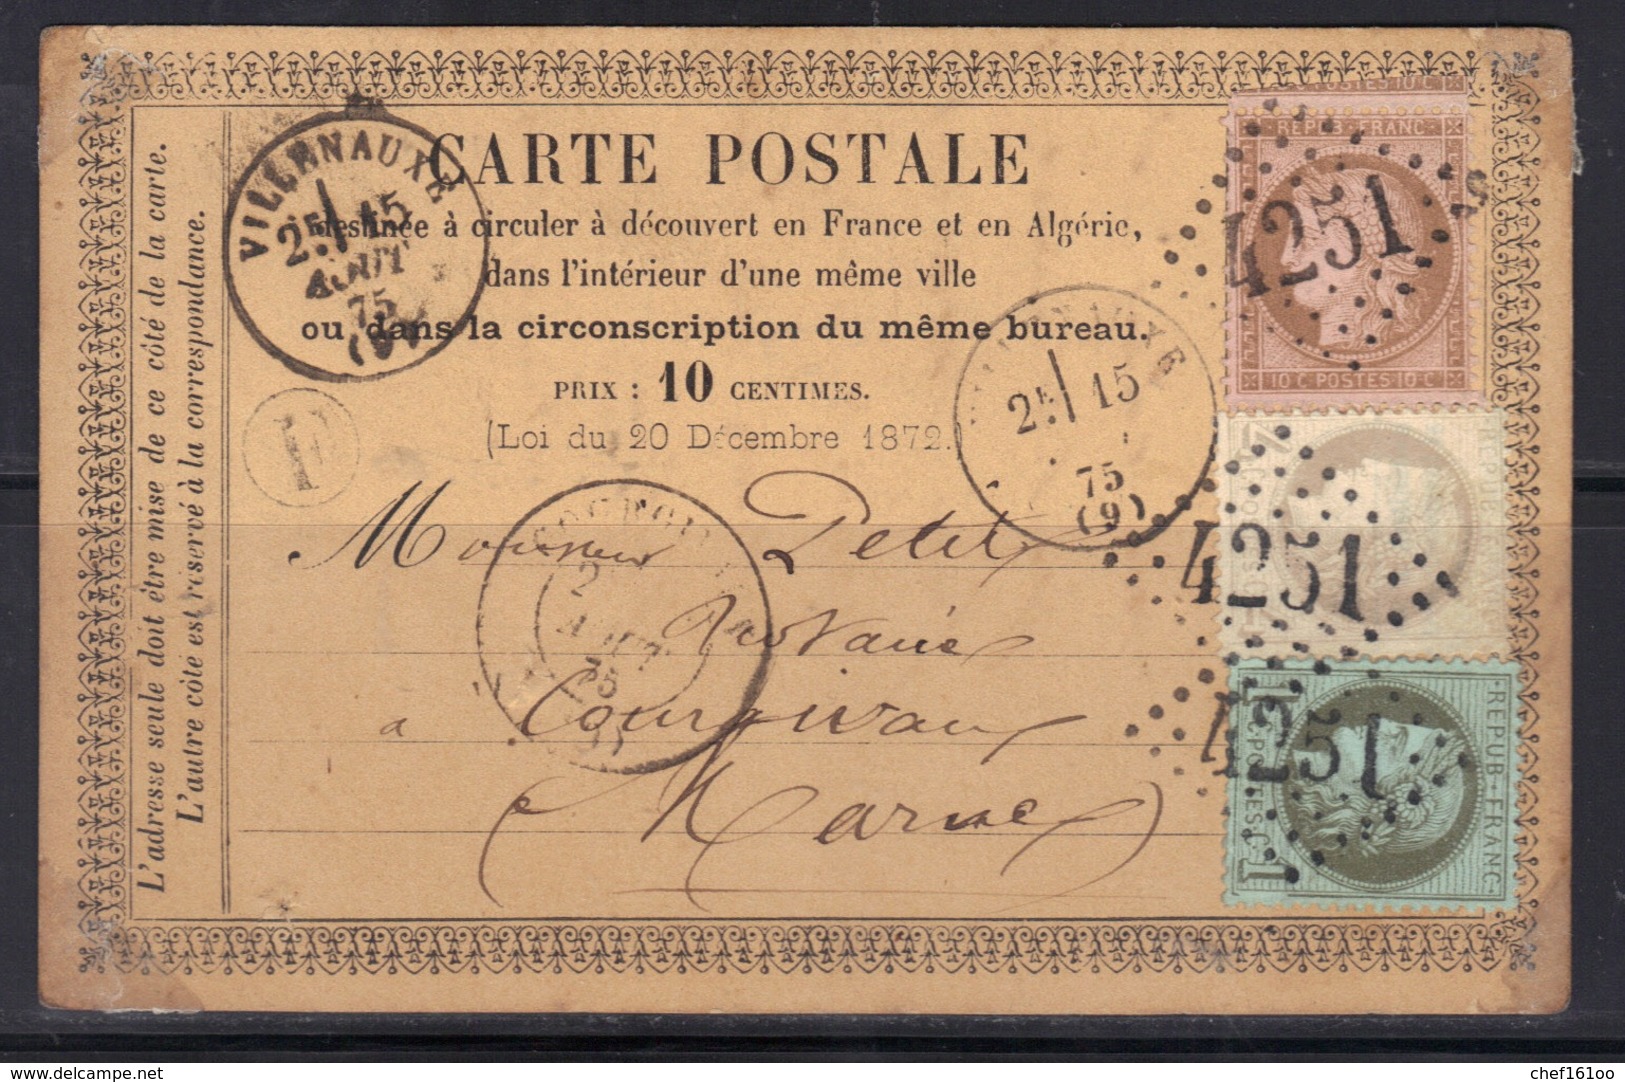 CARTE POSTALE
destinée à circuler à découvert en France et en Algérie,
dans l'intérieur d'une même ville
ou dans la circonscription du même bureau.
PRIX : 10 CENTIMES.
(Loi du 20 Décembre 1872.)
L'adresse seule doit être mise de ce côté de la carte.
L'autre côté est réservé à la correspondance.
VILLENAUXE
2E/ 15
AOUT
75
(9)
2E/ 15
75
(9)
2
AOUT
75
Monsieur Petit
Notaire
a Courgivaux
(Marne)
POSTES·10 C
REPUB·FRANC·
4251
10 C·POSTES·10 C
4251
REPUB·FRANC·
4251
1 C·POSTES·C 1
delcampe.net
chef16100